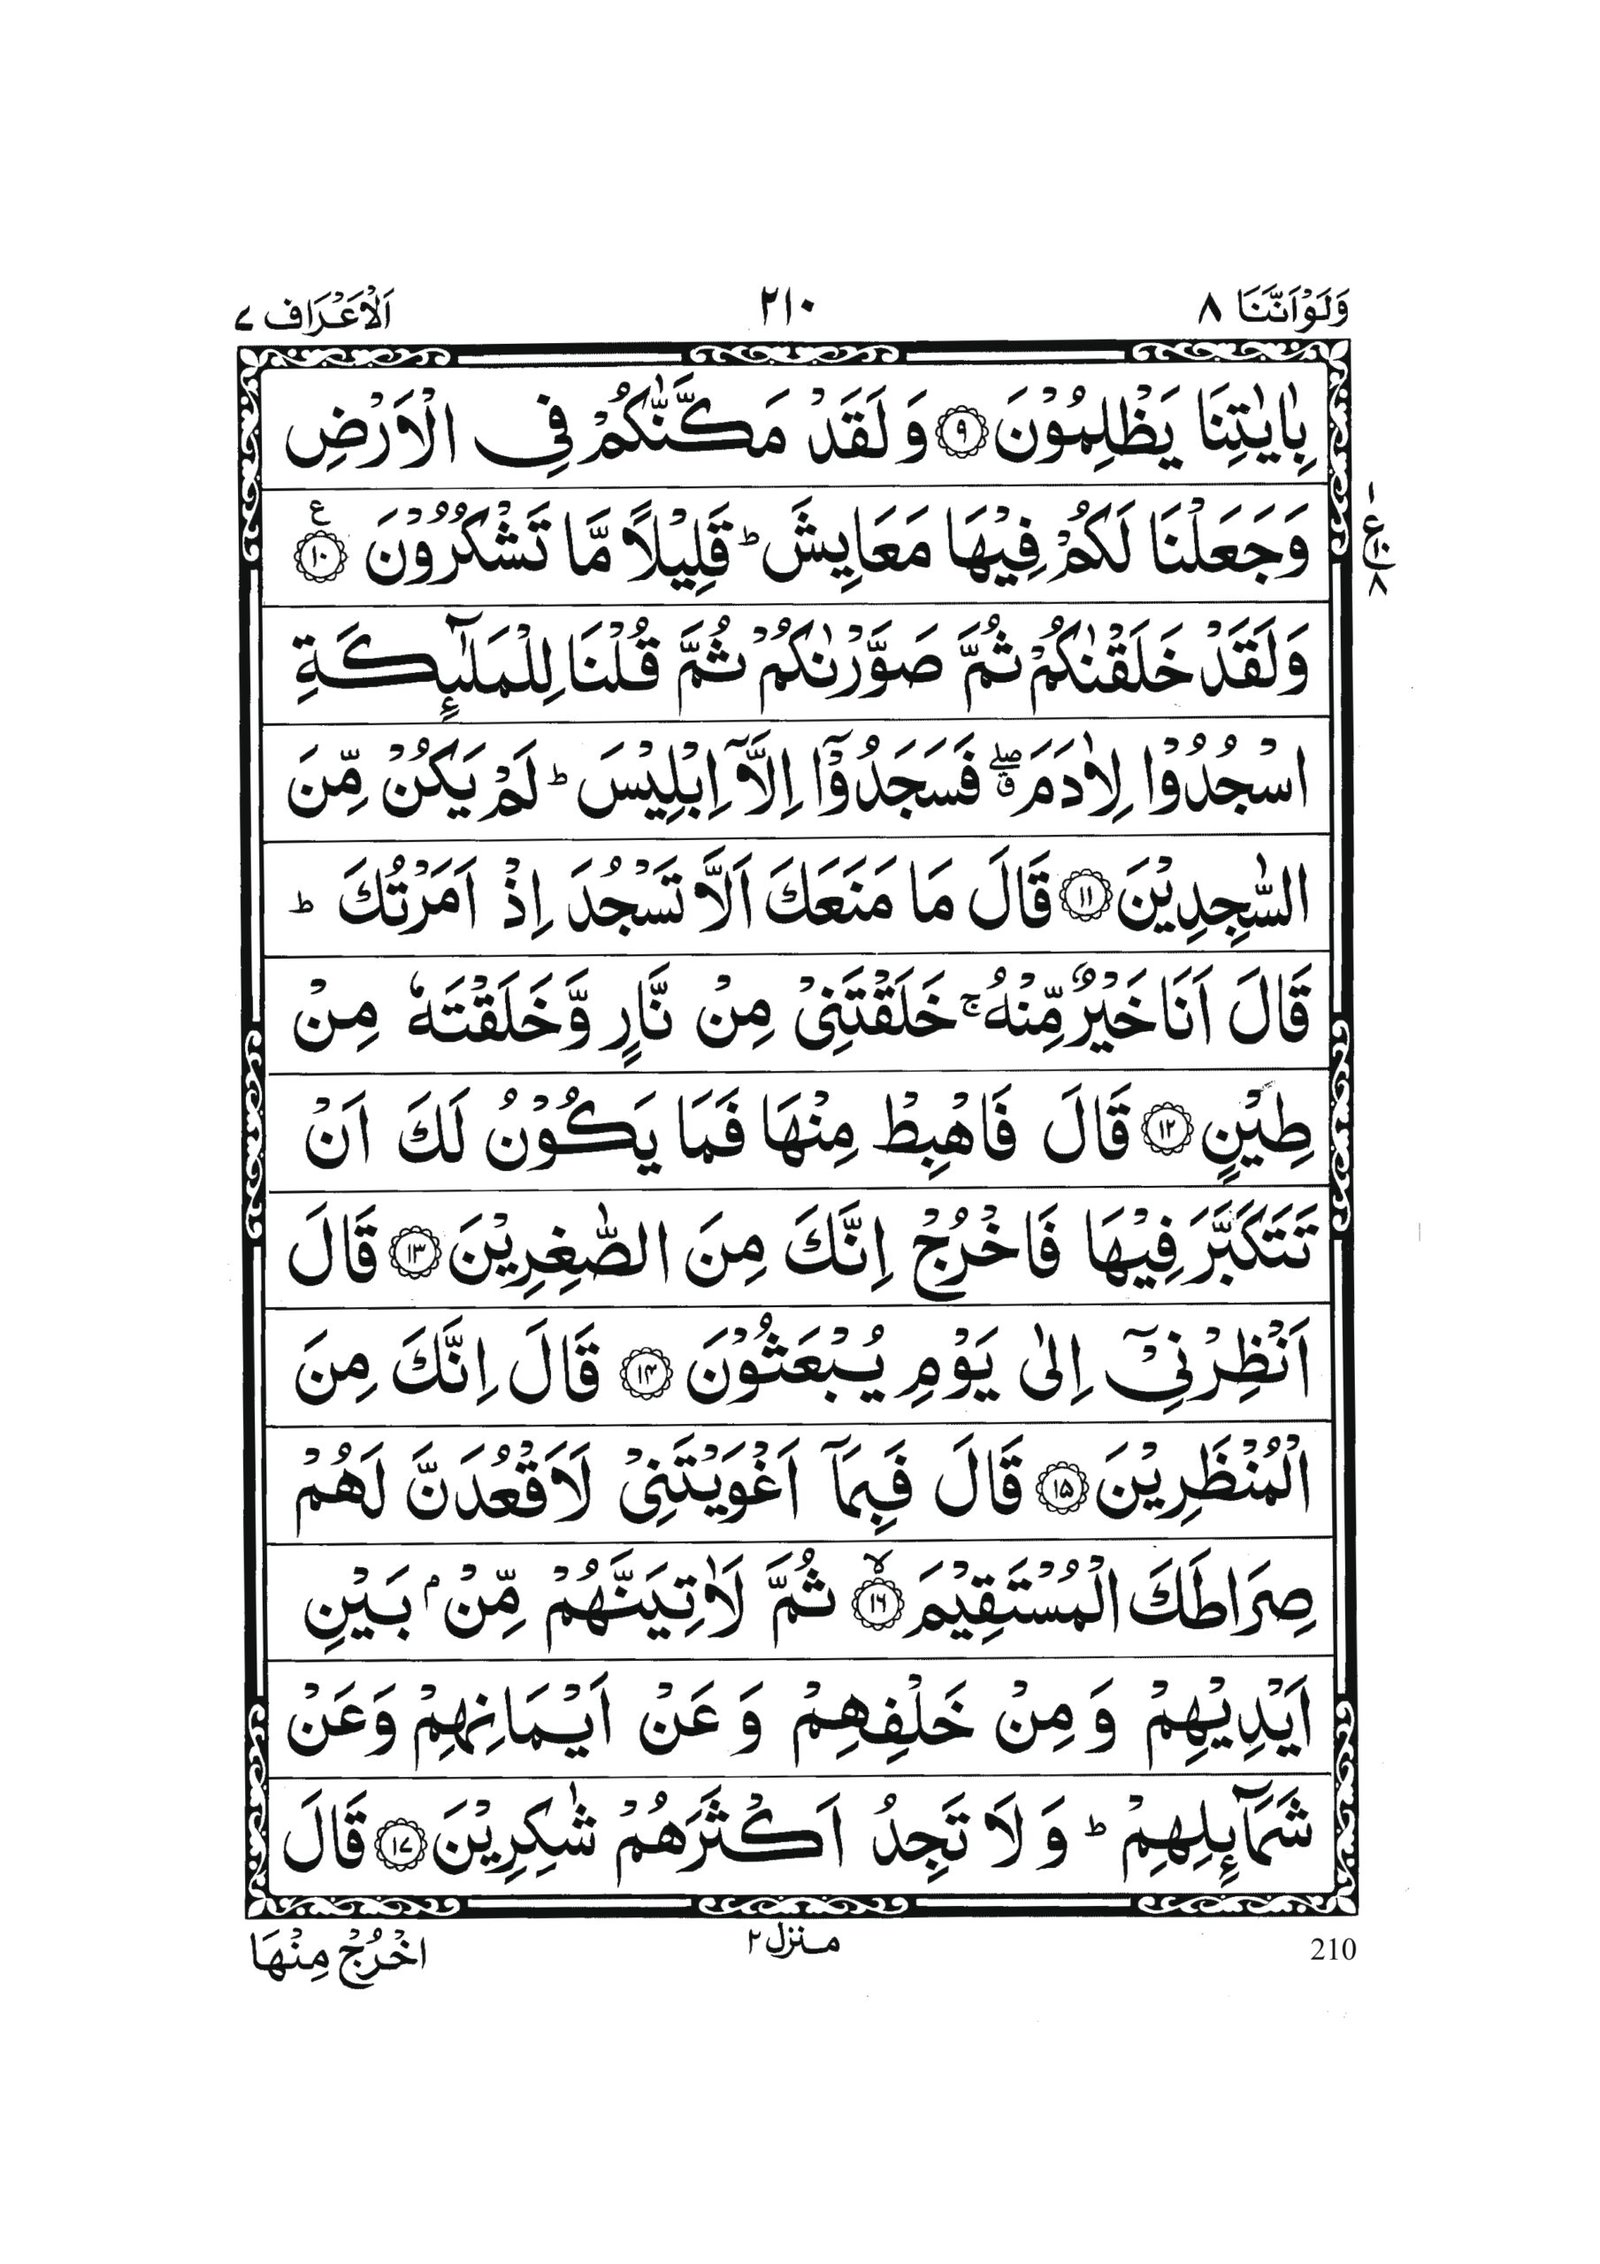 وَلَوْاَنَّنَا ٨ ٢١٠ اَلْاَعْرَاف ٧
بِاٰيٰتِنَا يَظْلِمُوْنَ ۹ وَلَقَدْ مَكَّنّٰكُمْ فِي الْاَرْضِ
وَجَعَلْنَا لَكُمْ فِيْهَا مَعَايِشَ ؕ قَلِيْلًا مَّا تَشْكُرُوْنَ ۱۰ ع
١ ع ١٠ ٨
وَلَقَدْ خَلَقْنٰكُمْ ثُمَّ صَوَّرْنٰكُمْ ثُمَّ قُلْنَا لِلْمَلٰٓئِكَةِ
اسْجُدُوْا لِاٰدَمَ ۖۗ فَسَجَدُوْٓا اِلَّآ اِبْلِيْسَ ؕ لَمْ يَكُنْ مِّنَ
السّٰجِدِيْنَ ۱۱ قَالَ مَا مَنَعَكَ اَلَّا تَسْجُدَ اِذْ اَمَرْتُكَ ؕ
قَالَ اَنَا خَيْرٌ مِّنْهُ ۚ خَلَقْتَنِيْ مِنْ نَّارٍ وَّخَلَقْتَهٗ مِنْ
طِيْنٍ ۱۲ قَالَ فَاهْبِطْ مِنْهَا فَمَا يَكُوْنُ لَكَ اَنْ
تَتَكَبَّرَ فِيْهَا فَاخْرُجْ اِنَّكَ مِنَ الصّٰغِرِيْنَ ۱۳ قَالَ
اَنْظِرْنِيْٓ اِلٰى يَوْمِ يُبْعَثُوْنَ ۱۴ قَالَ اِنَّكَ مِنَ
الْمُنْظَرِيْنَ ۱۵ قَالَ فَبِمَآ اَغْوَيْتَنِيْ لَاَقْعُدَنَّ لَهُمْ
صِرَاطَكَ الْمُسْتَقِيْمَ ۙ ۱۶ ثُمَّ لَاٰتِيَنَّهُمْ مِّنْۢ بَيْنِ
اَيْدِيْهِمْ وَمِنْ خَلْفِهِمْ وَعَنْ اَيْمَانِهِمْ وَعَنْ
شَمَآئِلِهِمْ ؕ وَلَا تَجِدُ اَكْثَرَهُمْ شٰكِرِيْنَ ۱۷ قَالَ
210 منزل ٢ اخْرُجْ مِنْهَا